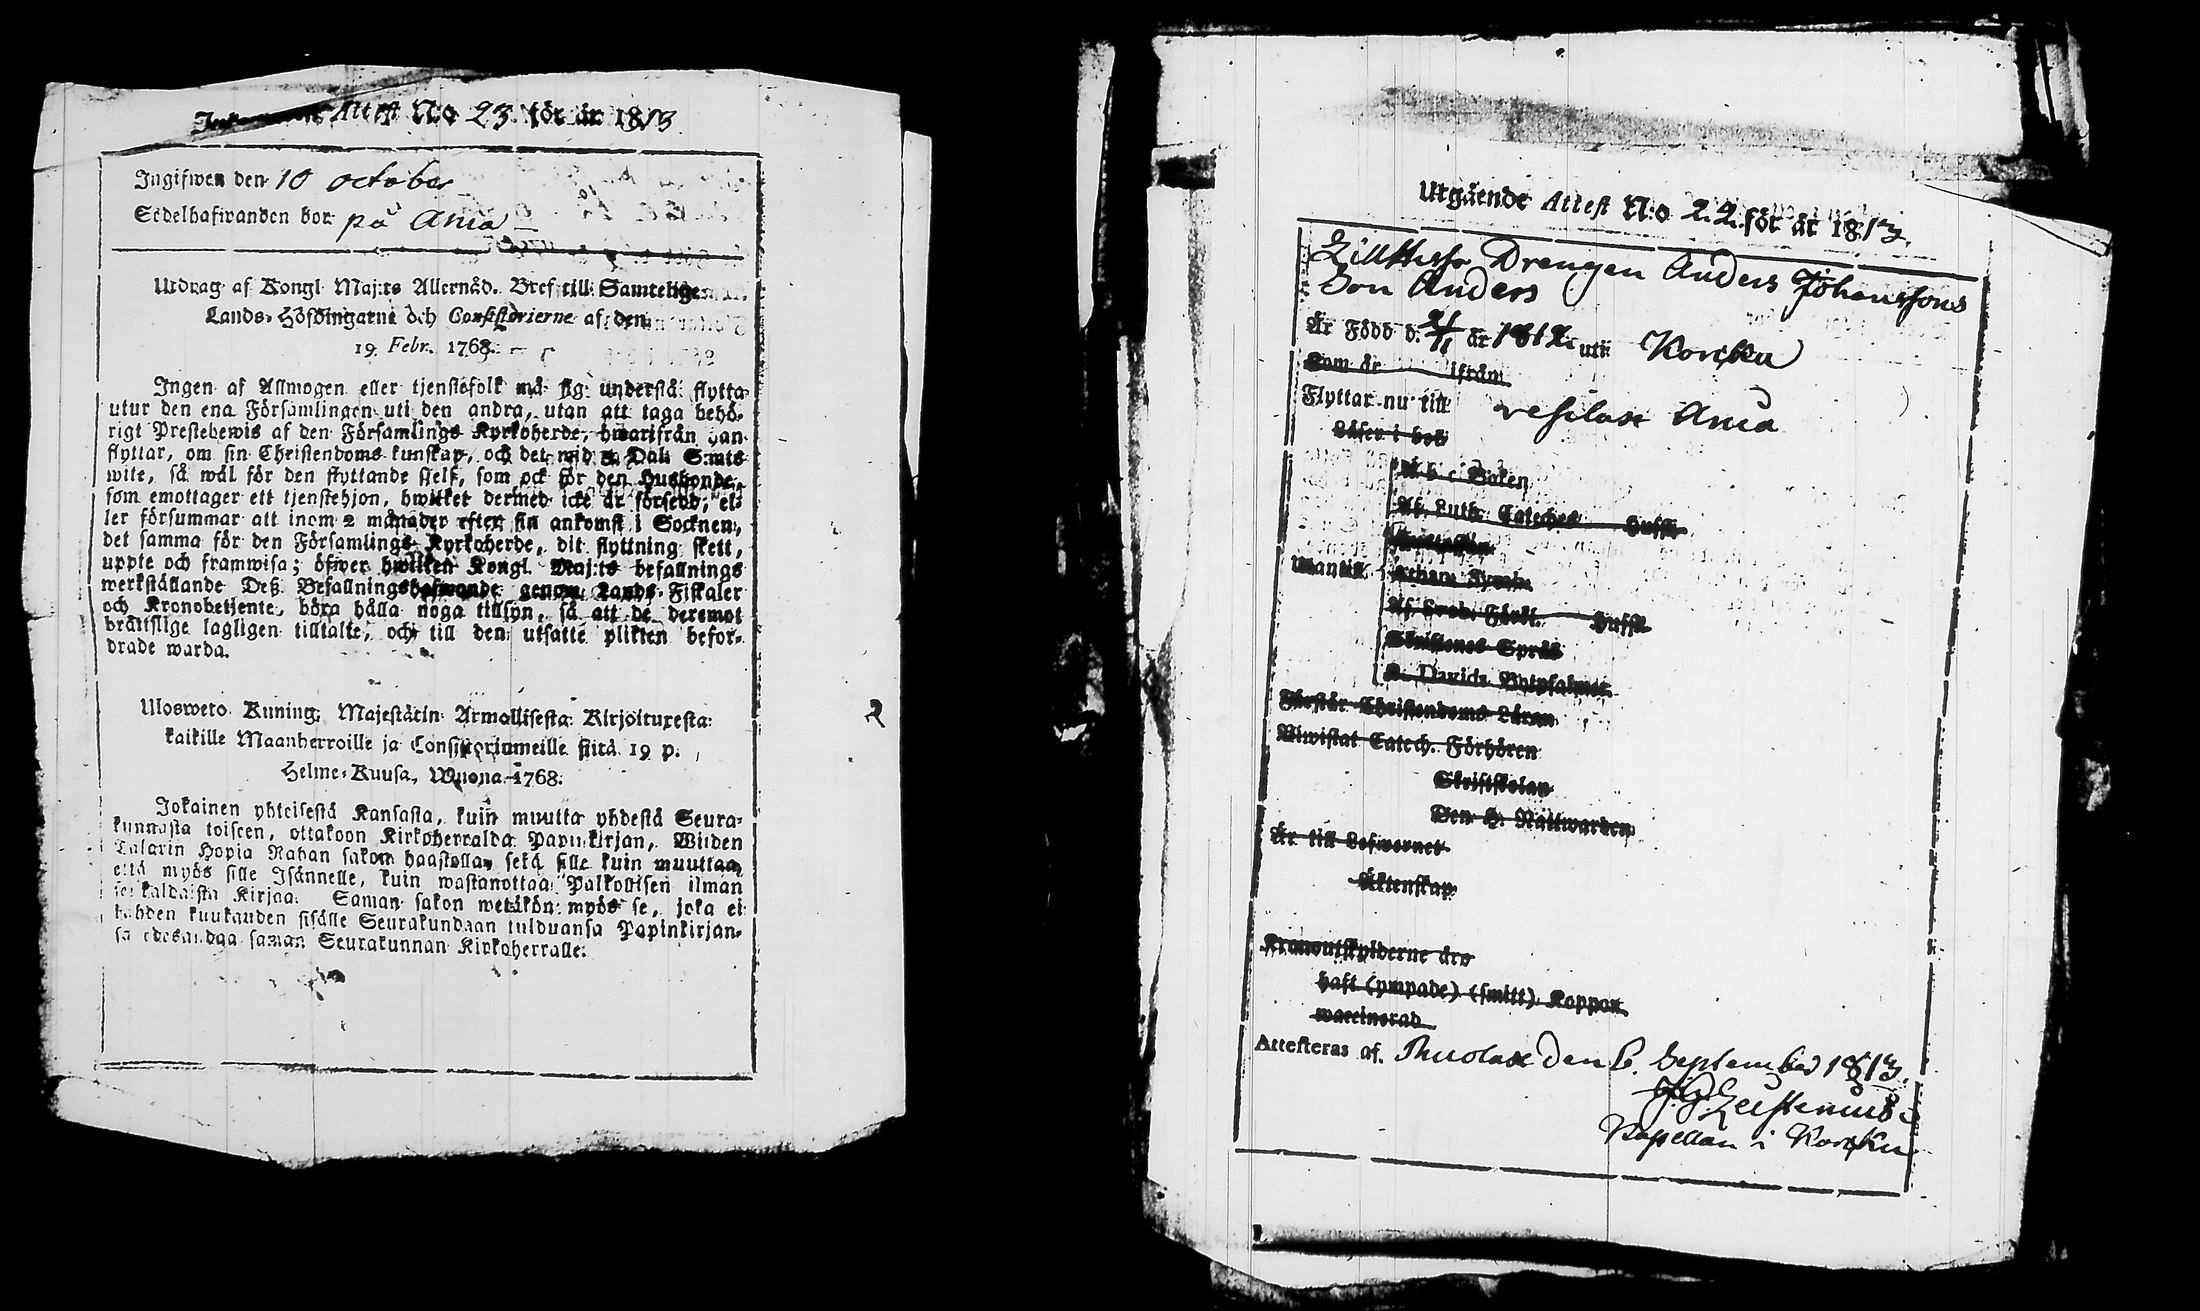 Attest N:o 23. för år 1813.
Ingifwen den 10 october
Sedelhafwanden bor på Ania
Utdrag af Kongl. Maj:ts Allernåd. Bref till Samtelige
Lands-Höfdingarne och Consistorierne af den
19. Febr. 1768.
Ingen af Allmogen eller tjenstefolk må sig understå flytta
utur den ena Församlingen uti den andra, utan att taga behö-
rigt Prestebewis af den Församlings Kyrkoherde, hwarifrån han
flyttar, om sin Christendoms kunskap, och det wid 5 Dal. S:mts
wite, så wäl för den flyttande sielf, som ock för den Husbonde,
som emottager ett tjenstehjon, hwilket dermed icke är försedd, el-
ler försummar att inom 2 månader efter sin ankomst i Socknen,
det samma för den Församlings Kyrkoherde, dit flyttning skett,
uppte och framwisa; öfwer hwilken Kongl. Maj:ts befallnings
werkställande Deß Befallningshafwande genom Lands-Fiskaler
och Kronobetjente, böra hålla noga tillsyn, så att de deremot
bråttslige lagligen tilltalte, och till den utsatte plikten befor-
drade warda.
Ulosweto Kuning. Majestätin Armollisesta Kirjoituxesta
kaikille Maanherroille ja Consistoriumeille siitä 19 p.
Helme-Kuusa, Wuona 1768.
Jokainen yhteisestä Kansasta, kuin muutta yhdestä Seura-
kunnasta toiseen, ottakoon Kirkoherralda Papinkirjan, Wiiden
Talarin Hopia Rahan sakon haastollan, sekä sille kuin muuttaa,
että myös sille Isännelle, kuin wastanottaa Palkollisen ilman
senkaldaista Kirjaa. Saman sakon wetäkön myös se, joka ei
kahden kuukauden sisälle Seurakundaan tulduansa Papinkirjan-
sa edesandaa saman Seurakunnan Kirkoherralle.
2
Utgående Attest N:o 22. för år 1813.
Drengen Anders Johanssons
Son Anders
Är Född d. 21/11 år 1812. uti Korpku
Kom år ifrån
Flyttar nu till Ania
Läser i bok
A b c Boken
Af. Luth. Cateches Hufst.
Wantill
Athan. Symb.
Af Sweb. Förkl. Hufst.
Skriftenes Språk
K. Davids Botpsalmer
Förstår Christendoms Läran
Biwistat Catech. Förhören
Skriftskolan
Den H. Nattwarden
Är till Lefwernet
Äktenskap
Kronoutskylderne äro
haft (ympade) (smitt) Koppor
waccinerad
Attesteras af. den 6. September 1813.
Kapellan i Korpku